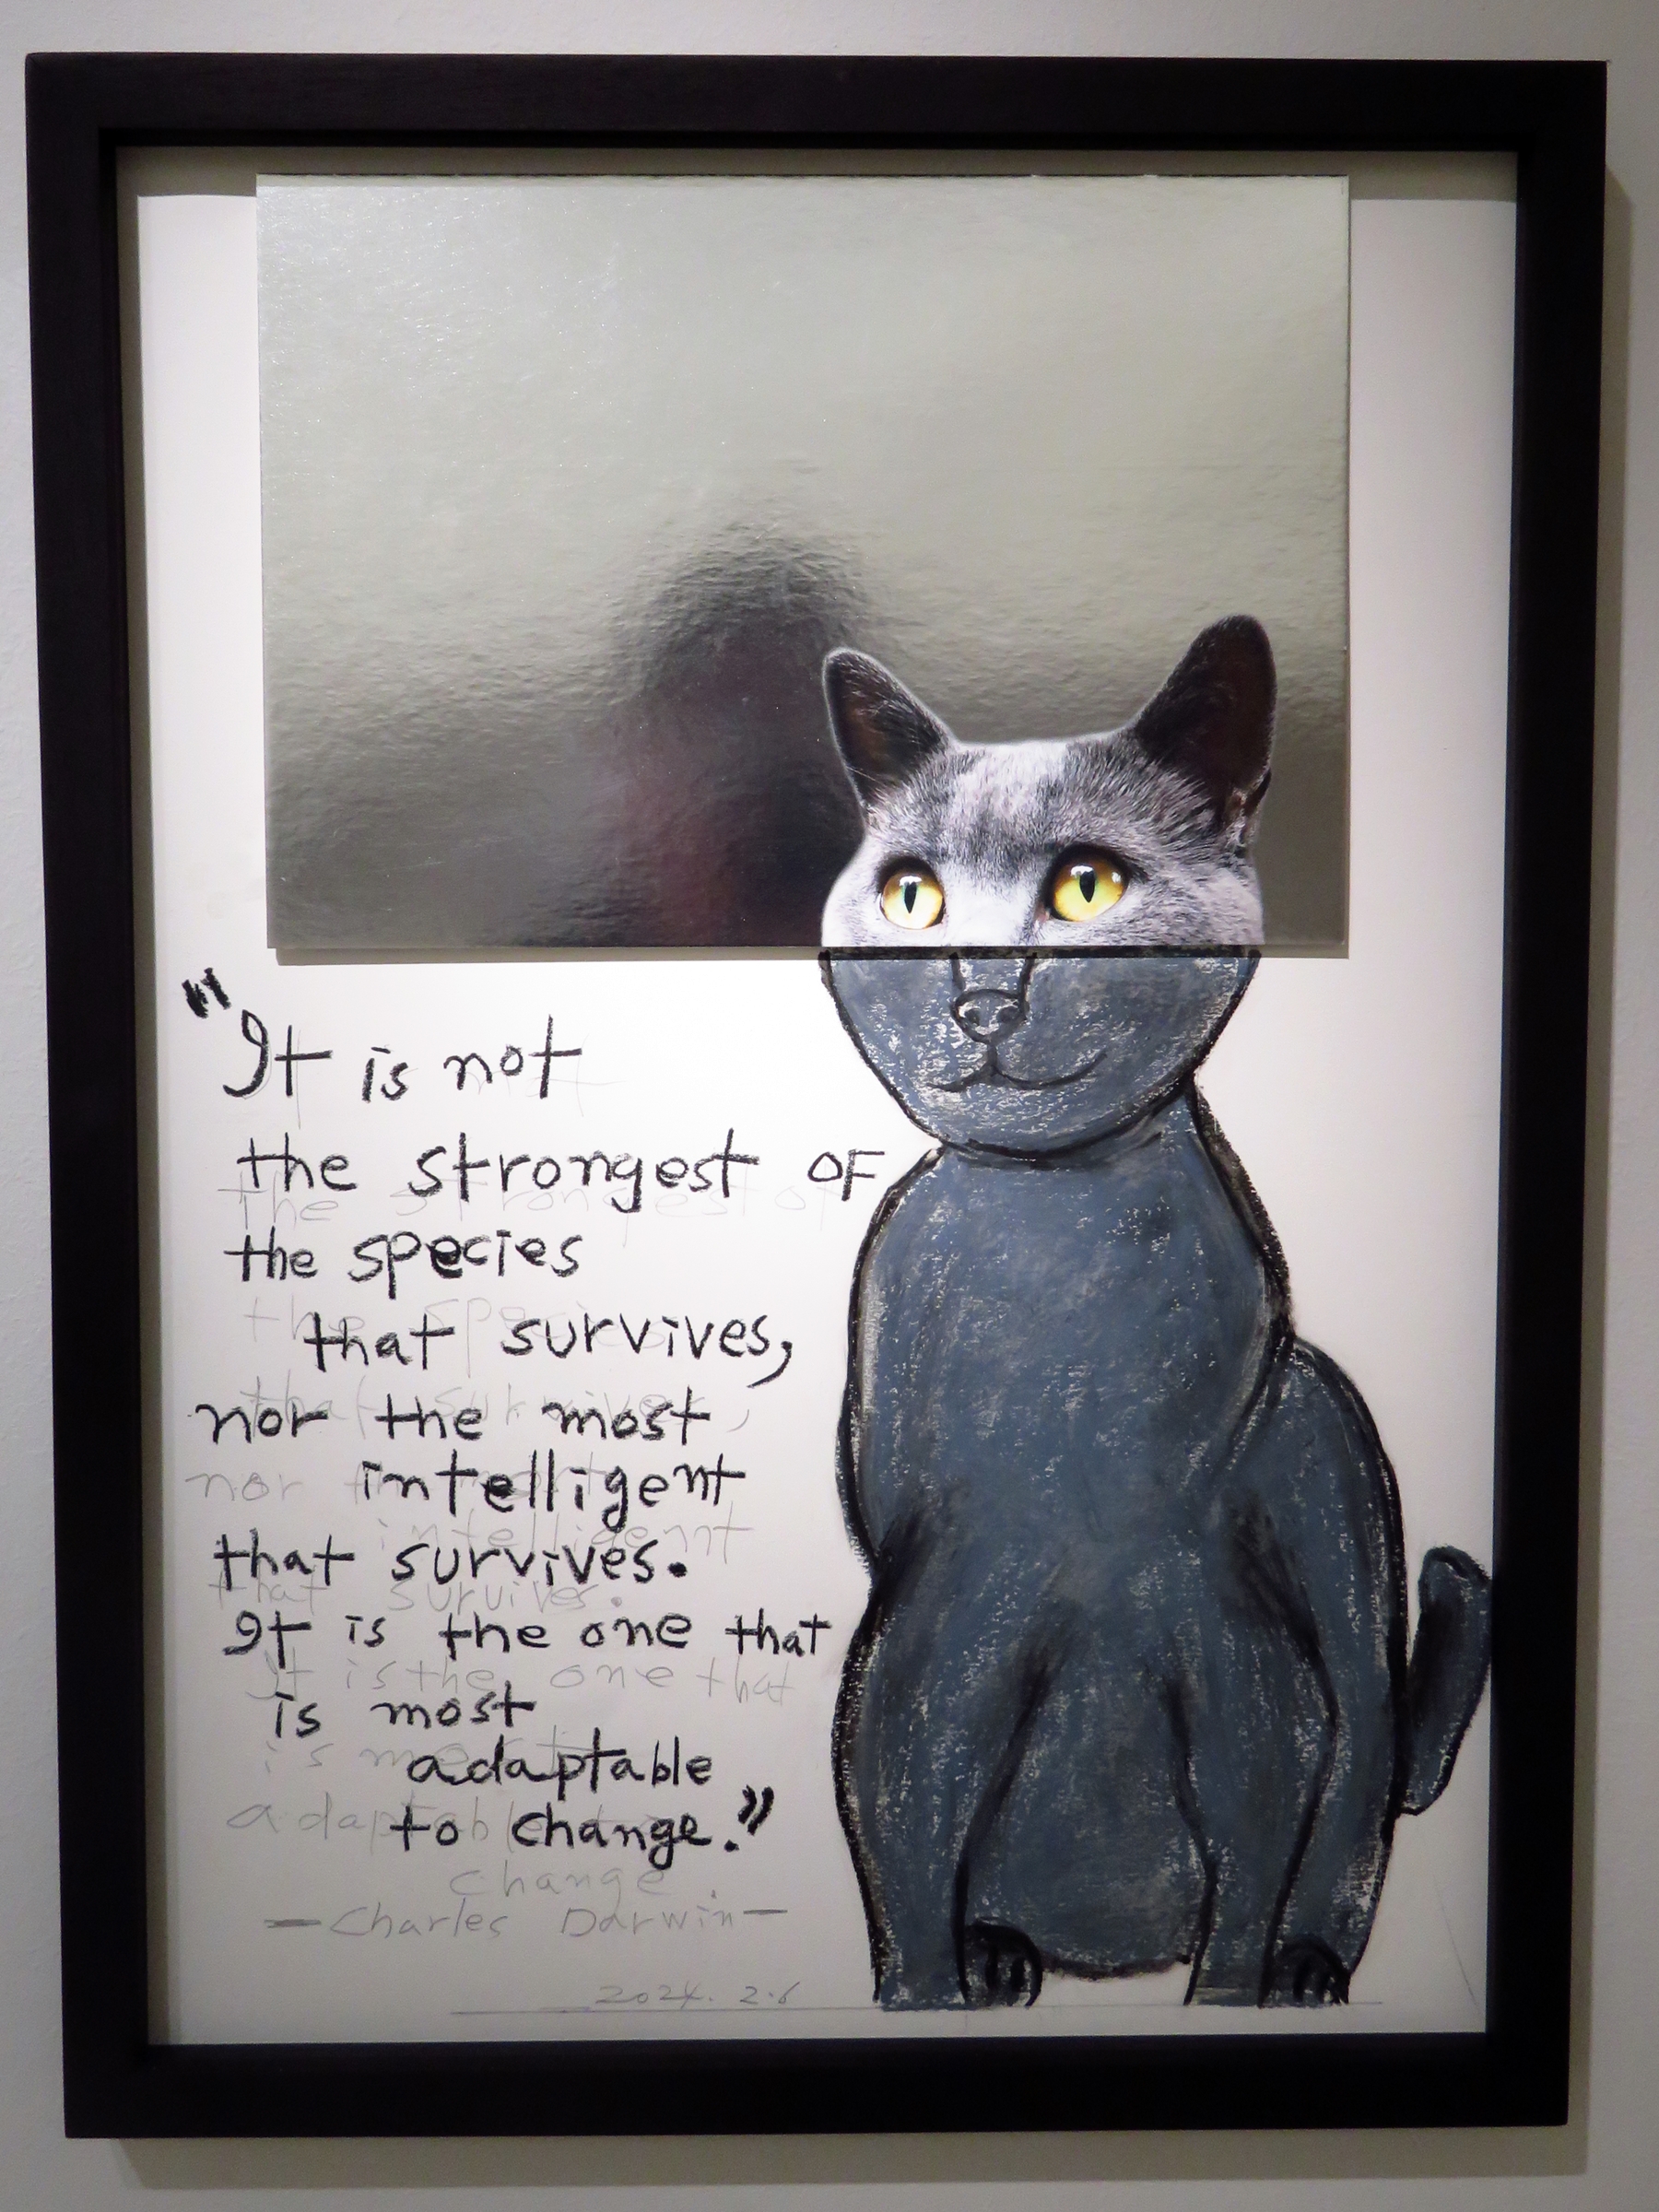 "It is not
the strongest OF
the species
that survives,
nor the most
intelligent
that survives.
It is the one that
is most
adaptable
to change."
— Charles Darwin —
2024. 2.6